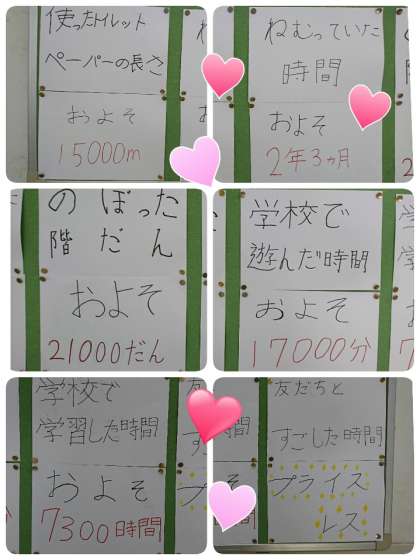 使ったトイレット
ペーパーの長さ
およそ
15000m
ねむっていた
時間
およそ
2年3ヵ月
のぼった
階だん
およそ
21000だん
学校で
遊んだ時間
およそ
17000分
学校で
学習した時間
およそ
7300時間
友だちと
すごした時間
プライス
レス